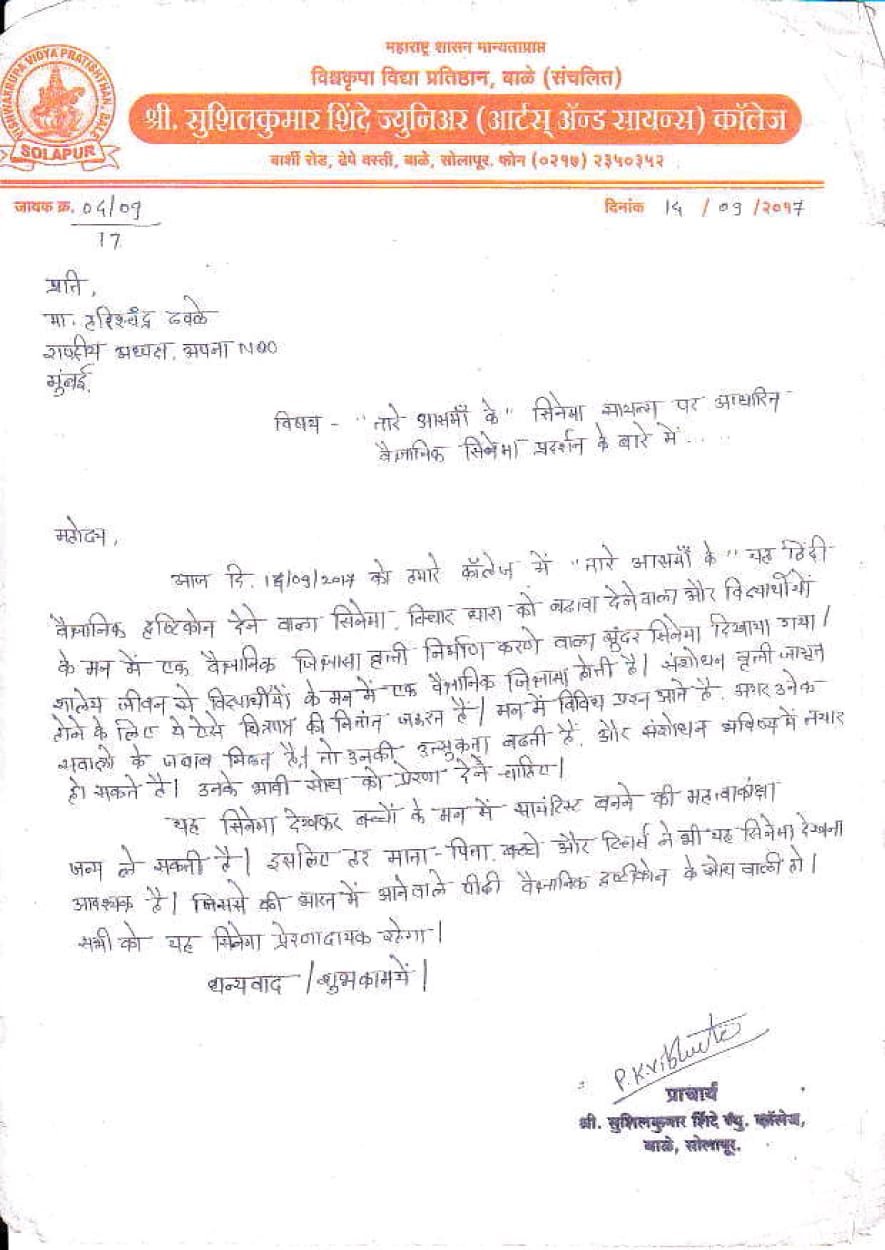 VISHWAKRUPA VIDYA PRATISHTHAN, BALE
SOLAPUR
महाराष्ट्र शासन मान्यताप्राप्त
विश्वकृपा विद्या प्रतिष्ठान, बाळे (संचलित)
श्री. सुशिलकुमार शिंदे ज्युनिअर (आर्टस् ॲन्ड सायन्स) कॉलेज
बार्शी रोड, ढेपे वस्ती, बाळे, सोलापूर. फोन (०२१७) २३५०३५२
जावक क्र.
17
दिनांक / 09 /२०१७
प्रति,
मा. हरिश्चंद्र ढवळे
राष्ट्रीय अध्यक्ष, अपना
मुंबई.
विषय - "तारे आसमाँ के" सिनेमा सायन्स पर आधारित
वैज्ञानिक सिनेमा प्रदर्शन के बारे में....
महोदय,
आज दि. को हमारे कॉलेज में "तारे आसमाँ के" यह हिंदी
वैज्ञानिक दृष्टिकोन देने वाला सिनेमा, विचार धारा को बढावा देनेवाला और विद्यार्थीयों
के मन में एक वैज्ञानिक जिज्ञासा वृत्ती निर्माण करणे वाला सुंदर सिनेमा दिखाया गया।
शालेय जीवन से विद्यार्थीयों के मन में एक वैज्ञानिक जिज्ञासा होती है। संशोधन वृत्ती जागृत
होने के लिए ये ऐसे चित्रपट की नितांत जरूरत है। मन में विविध प्रश्न आते है, अगर उनके
सवालो के जवाब मिलत है, तो उनकी उत्सुकता बढती है, और संशोधक भविष्य में तयार
हो सकते है। उनके भावी सोच को प्रेरणा देने चाहिए।
यह सिनेमा देखकर बच्चों के मन में सायंटिस्ट बनने की महत्वाकांक्षा
जन्म ले सकती है। इसलिए हर माता-पिता, बच्चे और टिचर्स ने भी यह सिनेमा देखना
आवश्यक है। जिससे की भारत में आनेवाले पीढी वैज्ञानिक दृष्टीकोन के सोच वाली हो।
सभी को यह सिनेमा प्रेरणादायक रहेगा।
धन्यवाद /शुभकामयें।
P.K.Vibhute
प्राचार्य
श्री. सुशिलकुमार शिंदे ज्यु. कॉलेज,
बाळे, सोलापूर.